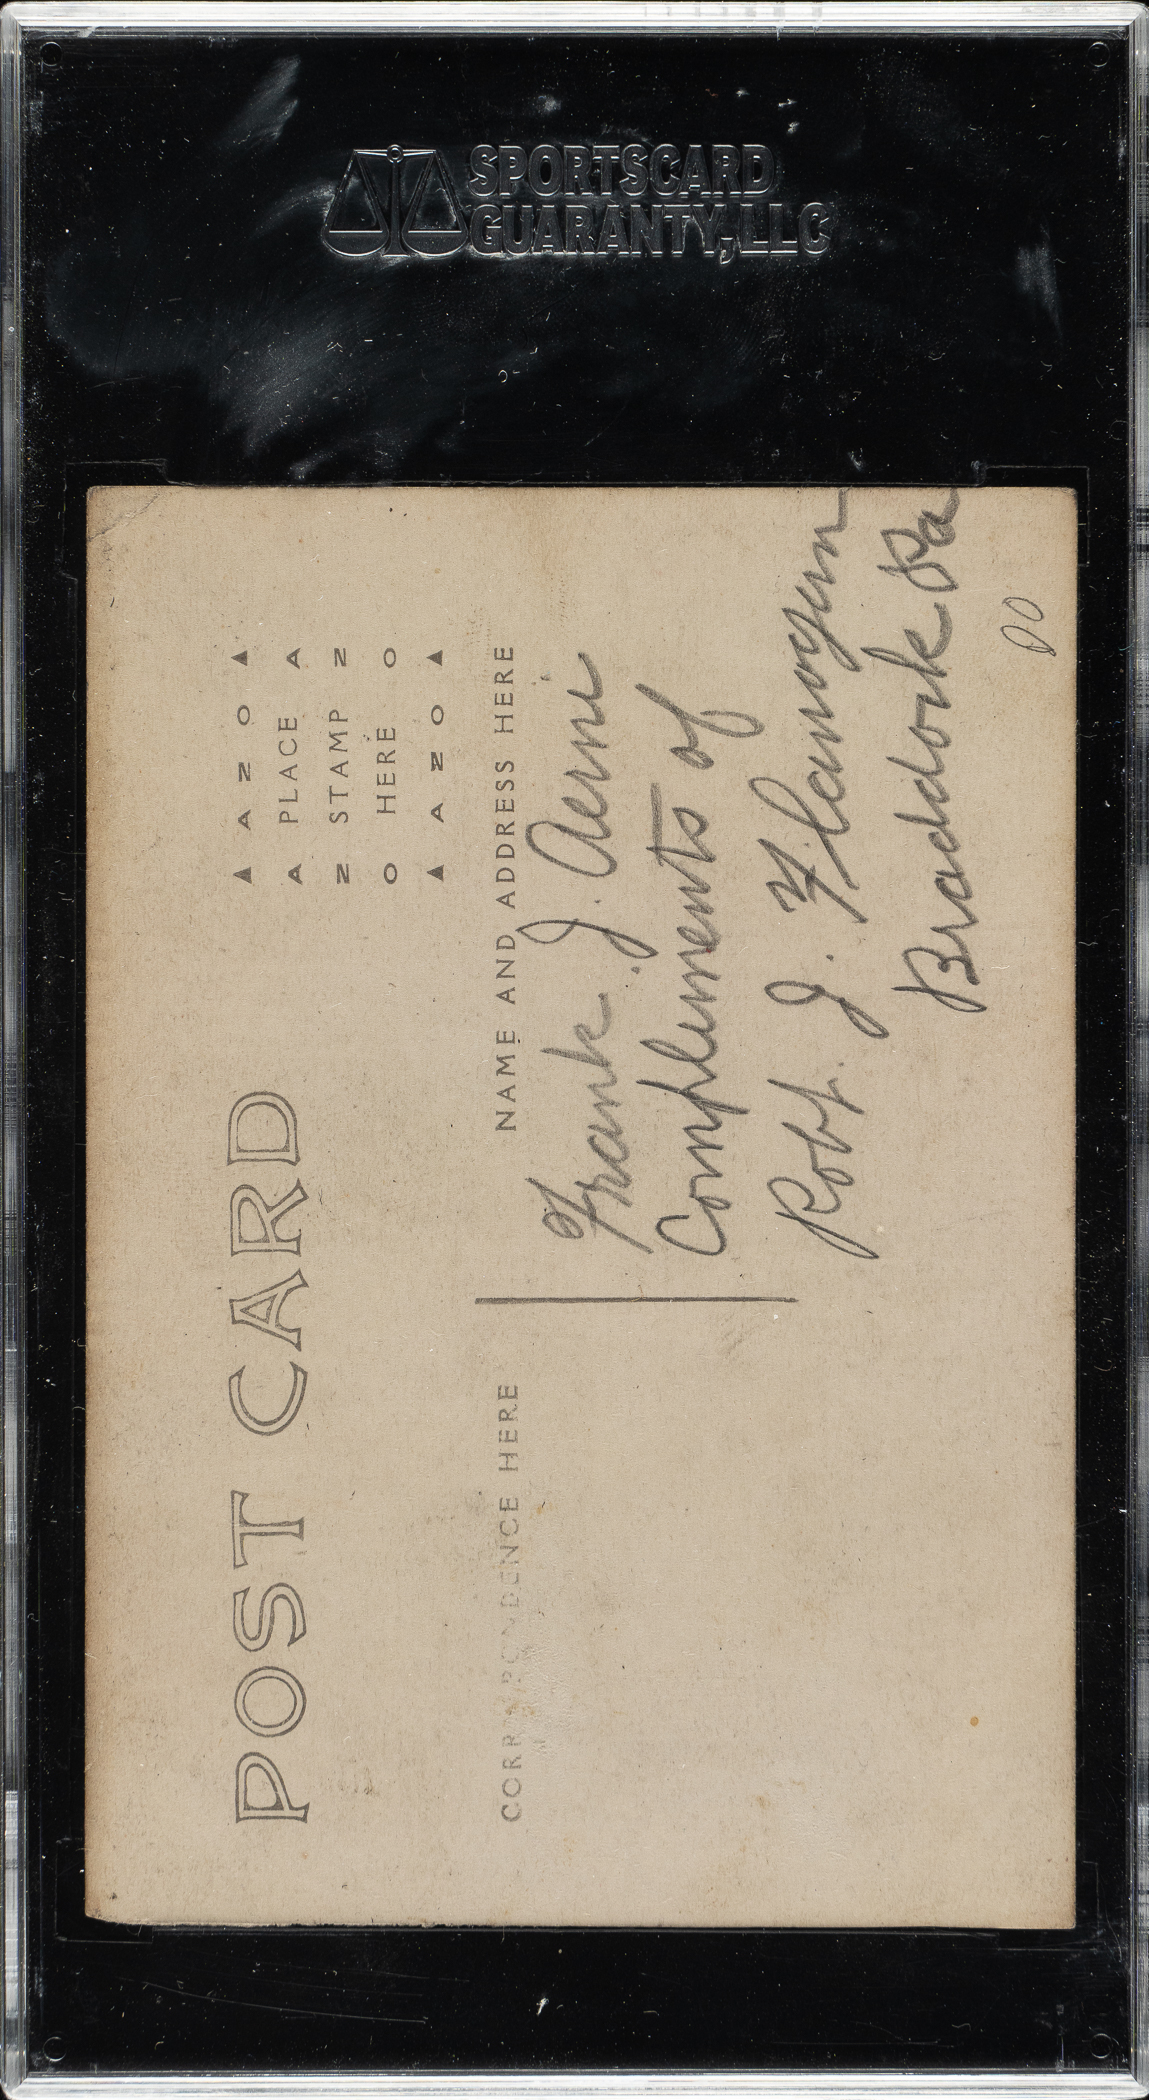 SPORTSCARD
GUARANTY, LLC
POST CARD
▲ A Z O ▲
A PLACE A
Z STAMP Z
O HERE O
▲ A Z O ▲
CORRESPONDENCE HERE
NAME AND ADDRESS HERE
Frank J. Aerni
Complements of
Robt. J. Flanogen
Braddock Pa